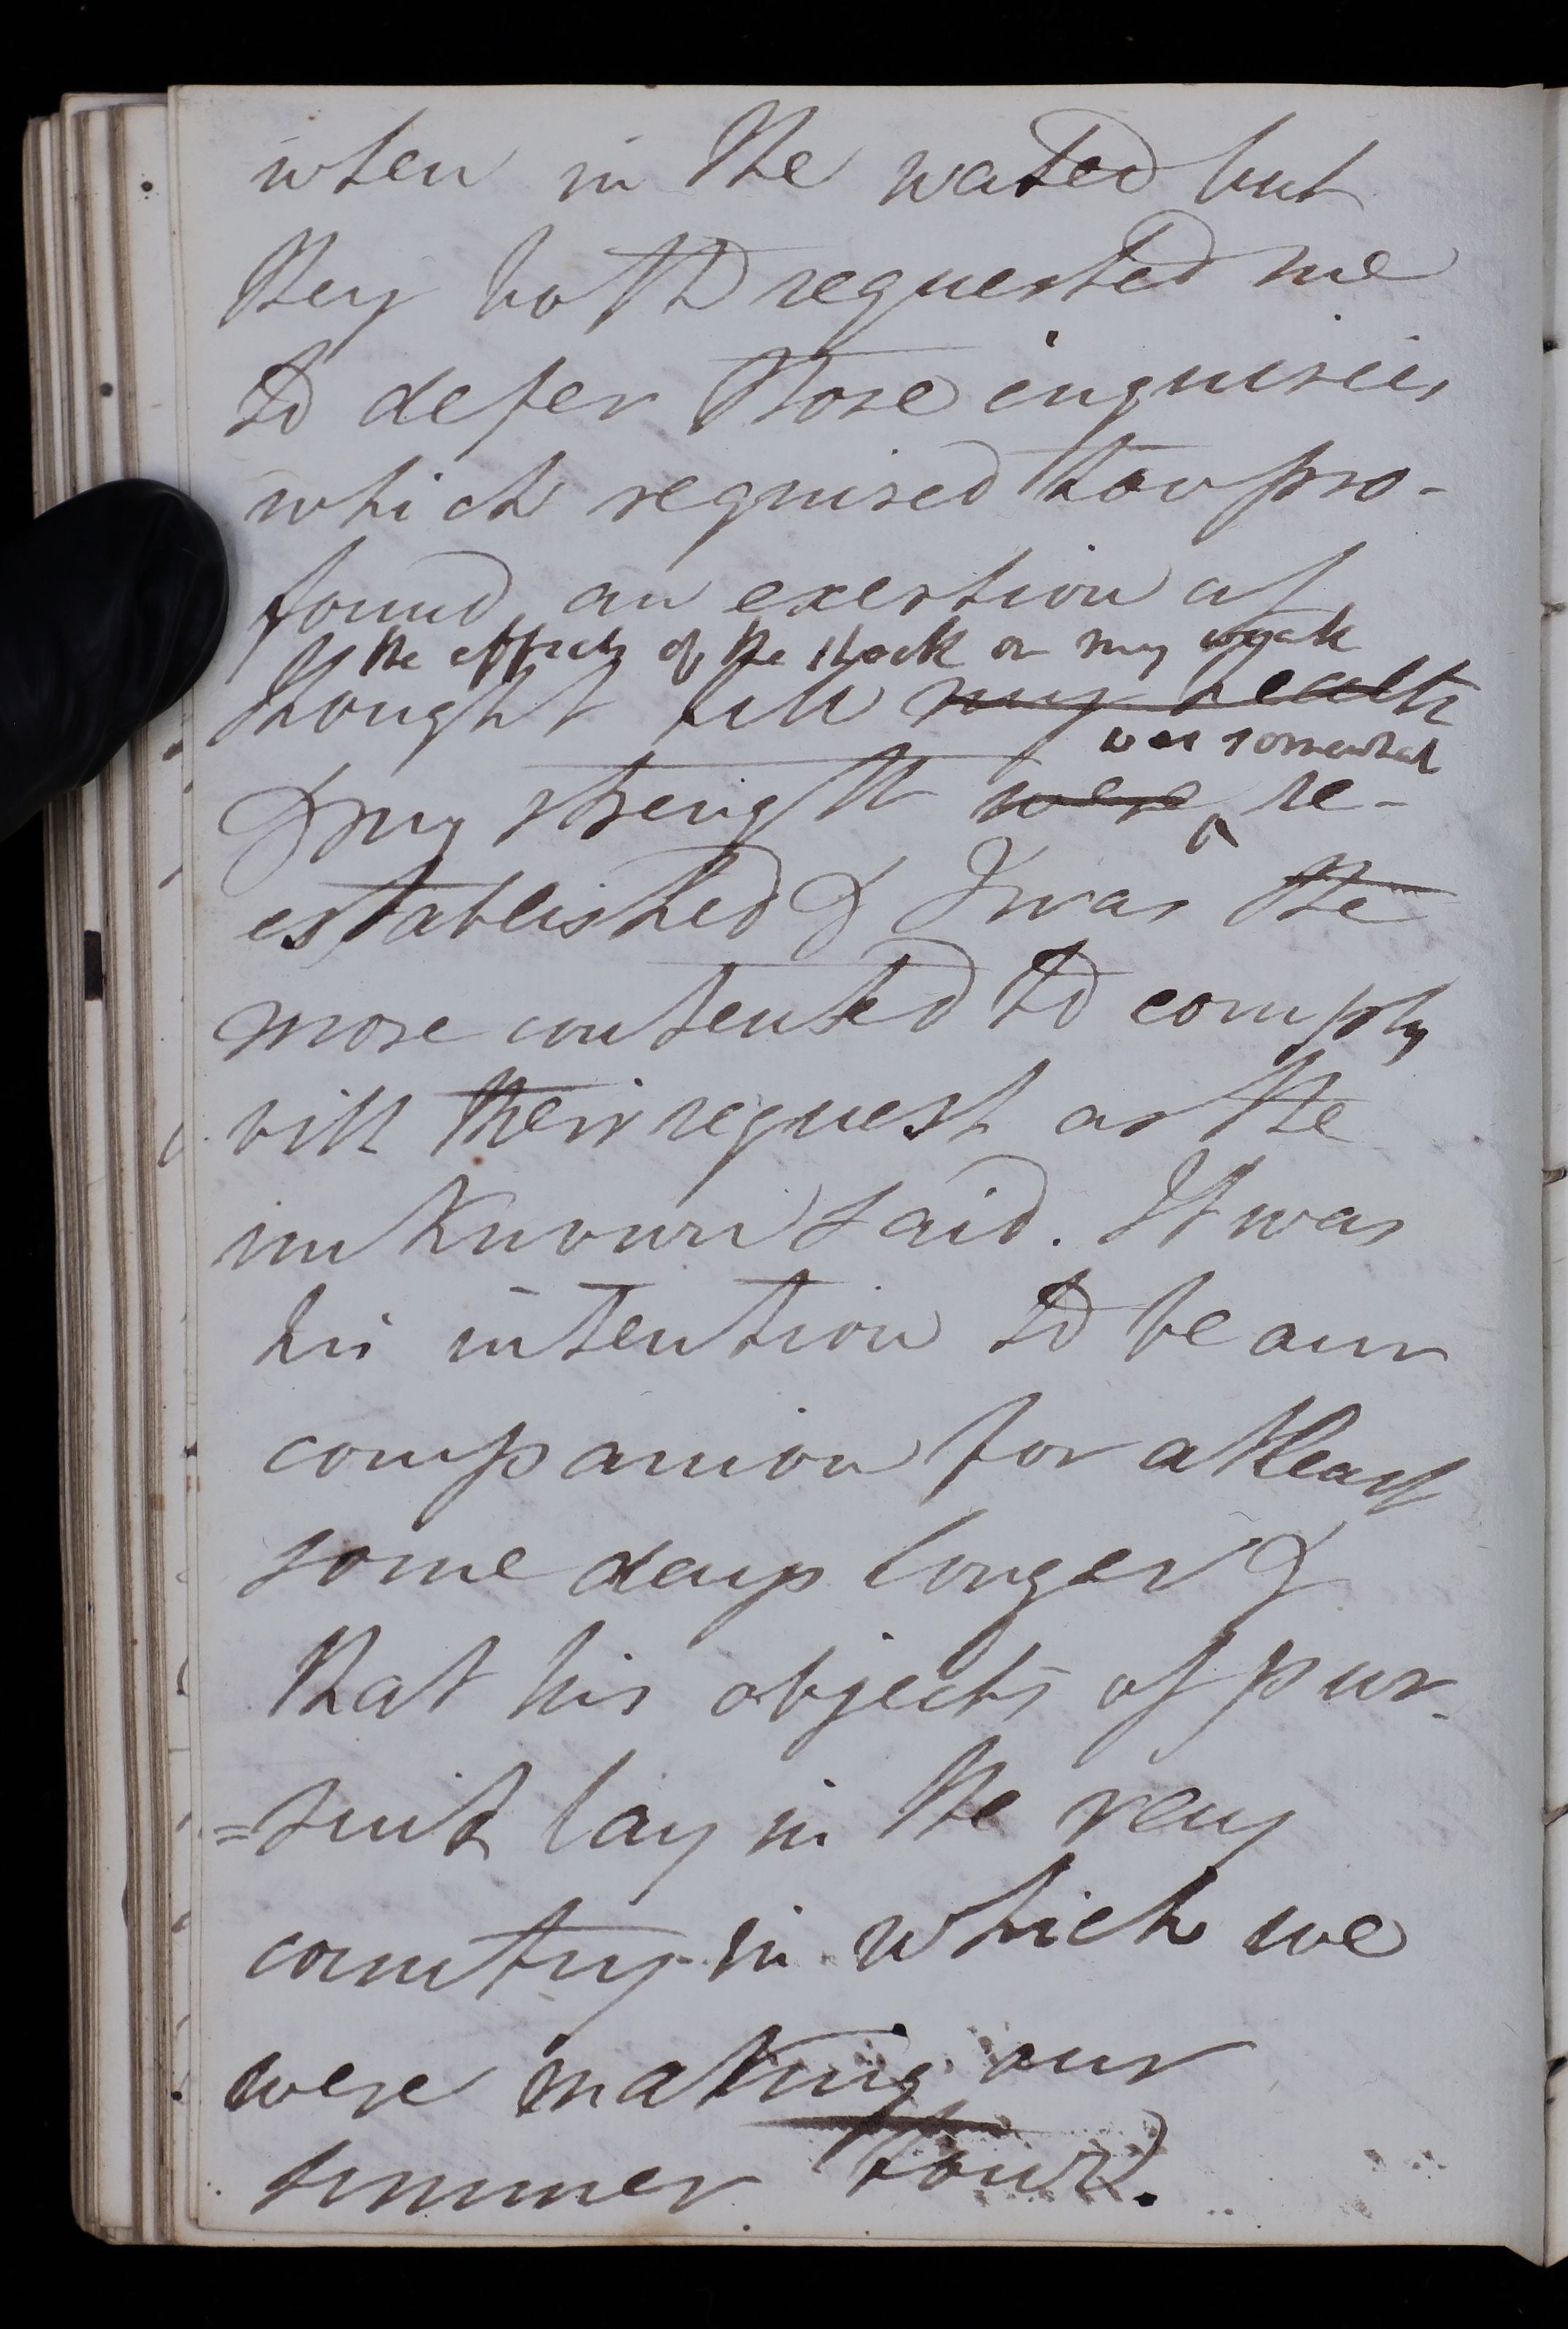 when in the water but
they both requested me
to defer those inquiries
which required too pro-
found an exertion of
the effects of the shock on my
thought till my health
was somewhat
& my strength were re-
established & I was the
more contented to comply
with their request as the
unknown said. It was
his intention to be our
companion for at least
some days longer &
that his objects of pur-
=suit lay in the very
country in which we
were making our
summer tour.